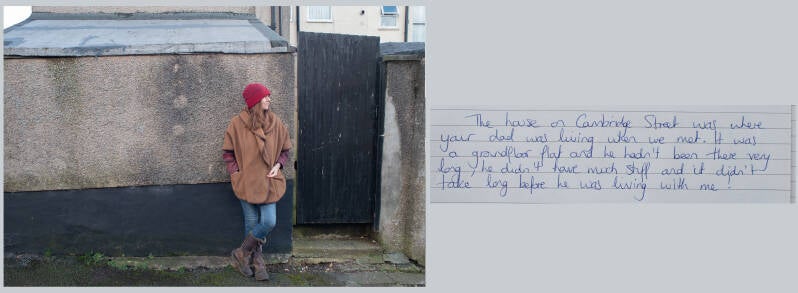 The house on Cambridge Street was where
your dad was living when we met. It was
a groundfloor flat and he hadn't been there very
long, he didn't have much stuff and it didn't
take long before he was living with me!